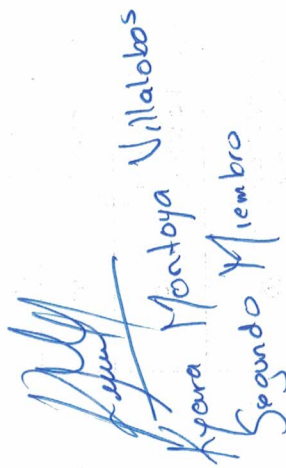 Kyara Montoya Villalobos
Segundo Miembro